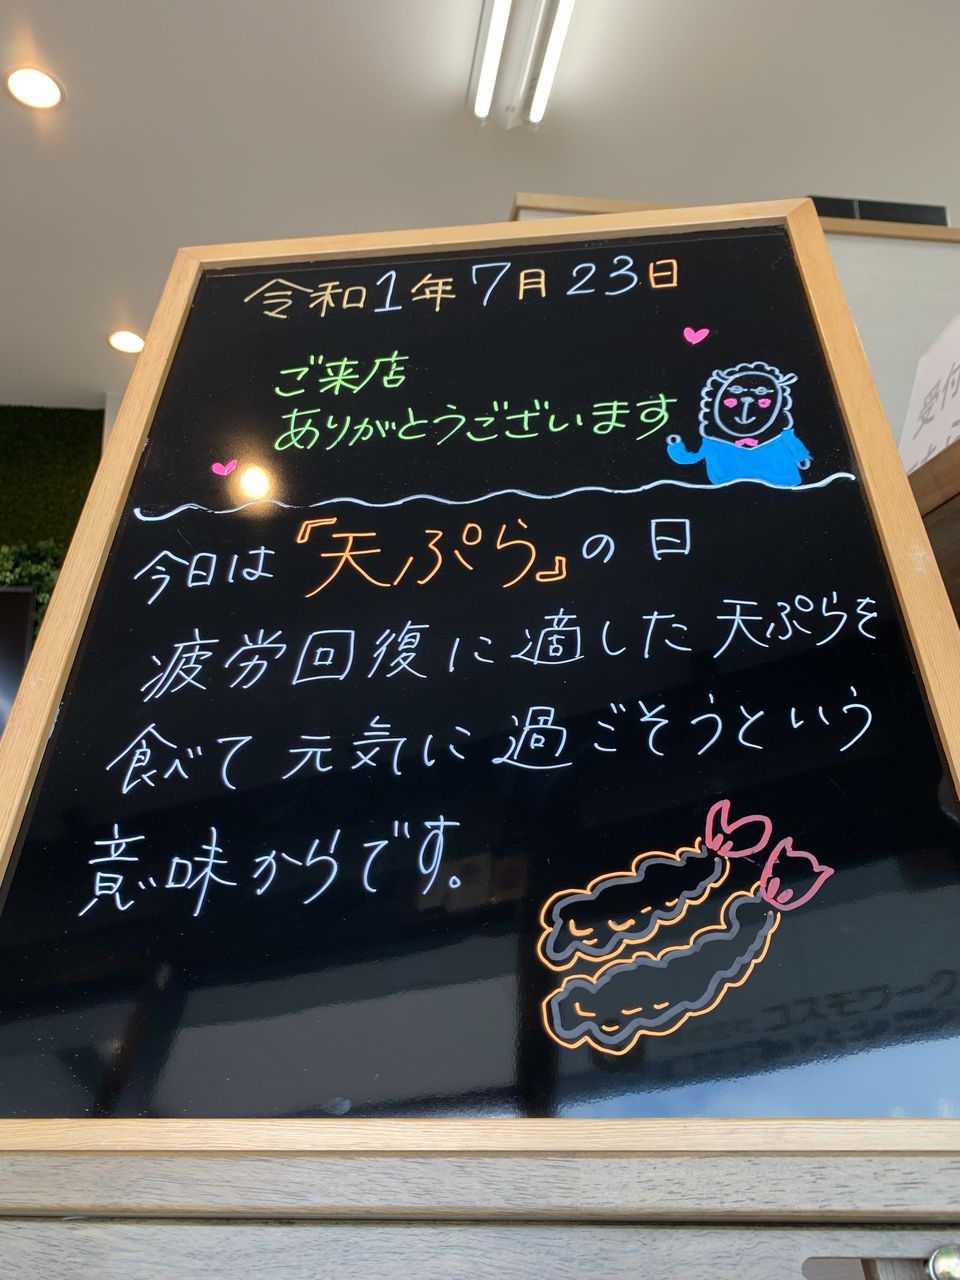 令和1年7月23日
ご来店
ありがとうございます
今日は『天ぷら』の日
疲労回復に適した天ぷらを
食べて元気に過ごそうという
意味からです。
コスモワーク
受付